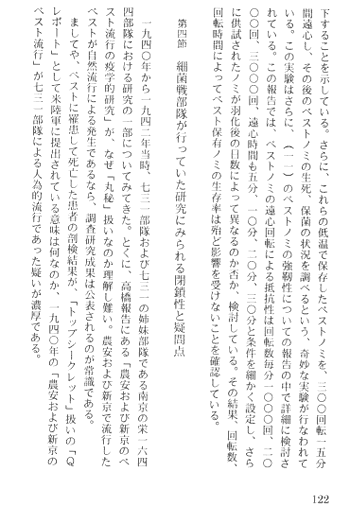 下することを示している。さらに、これらの低温で保存したペストノミを、三〇〇回転一五分
間遠心し、その後のペストノミの生死、保菌の状況を調べるという、奇妙な実験が行なわれて
いる。この実験はさらに、(一一)のペストノミの強靱性についての報告の中で詳細に検討さ
れている。この報告では、ペストノミの遠心回転による抵抗性は回転数毎分一〇〇〇回、二〇
〇〇回、三〇〇〇回、遠心時間も五分、一〇分、二〇分、三〇分と条件を細かく設定し、さら
に供試されたノミが羽化後の日数によって異なるのか否か、検討している。その結果、回転数、
回転時間によってペスト保有ノミの生存率は殆ど影響を受けないことを確認している。
第四節 細菌戦部隊が行っていた研究にみられる閉鎖性と疑問点
一九四〇年から一九四二年当時、七三一部隊および七三一の姉妹部隊である南京の栄一六四
四部隊における研究の一部についてみてきた。とくに、高橋報告にある「農安および新京のペ
スト流行の疫学的研究」が、なぜ「丸秘」扱いなのか理解し難い。農安および新京で流行した
ペストが自然流行による発生であるなら、調査研究成果は公表されるのが常識である。
ましてや、ペストに罹患して死亡した患者の剖検結果が、「トップシークレット」扱いの「Q
レポート」として米陸軍に提出されている意味は何なのか、一九四〇年の「農安および新京の
ペスト流行」が七三一部隊による人為的流行であった疑いが濃厚である。
122